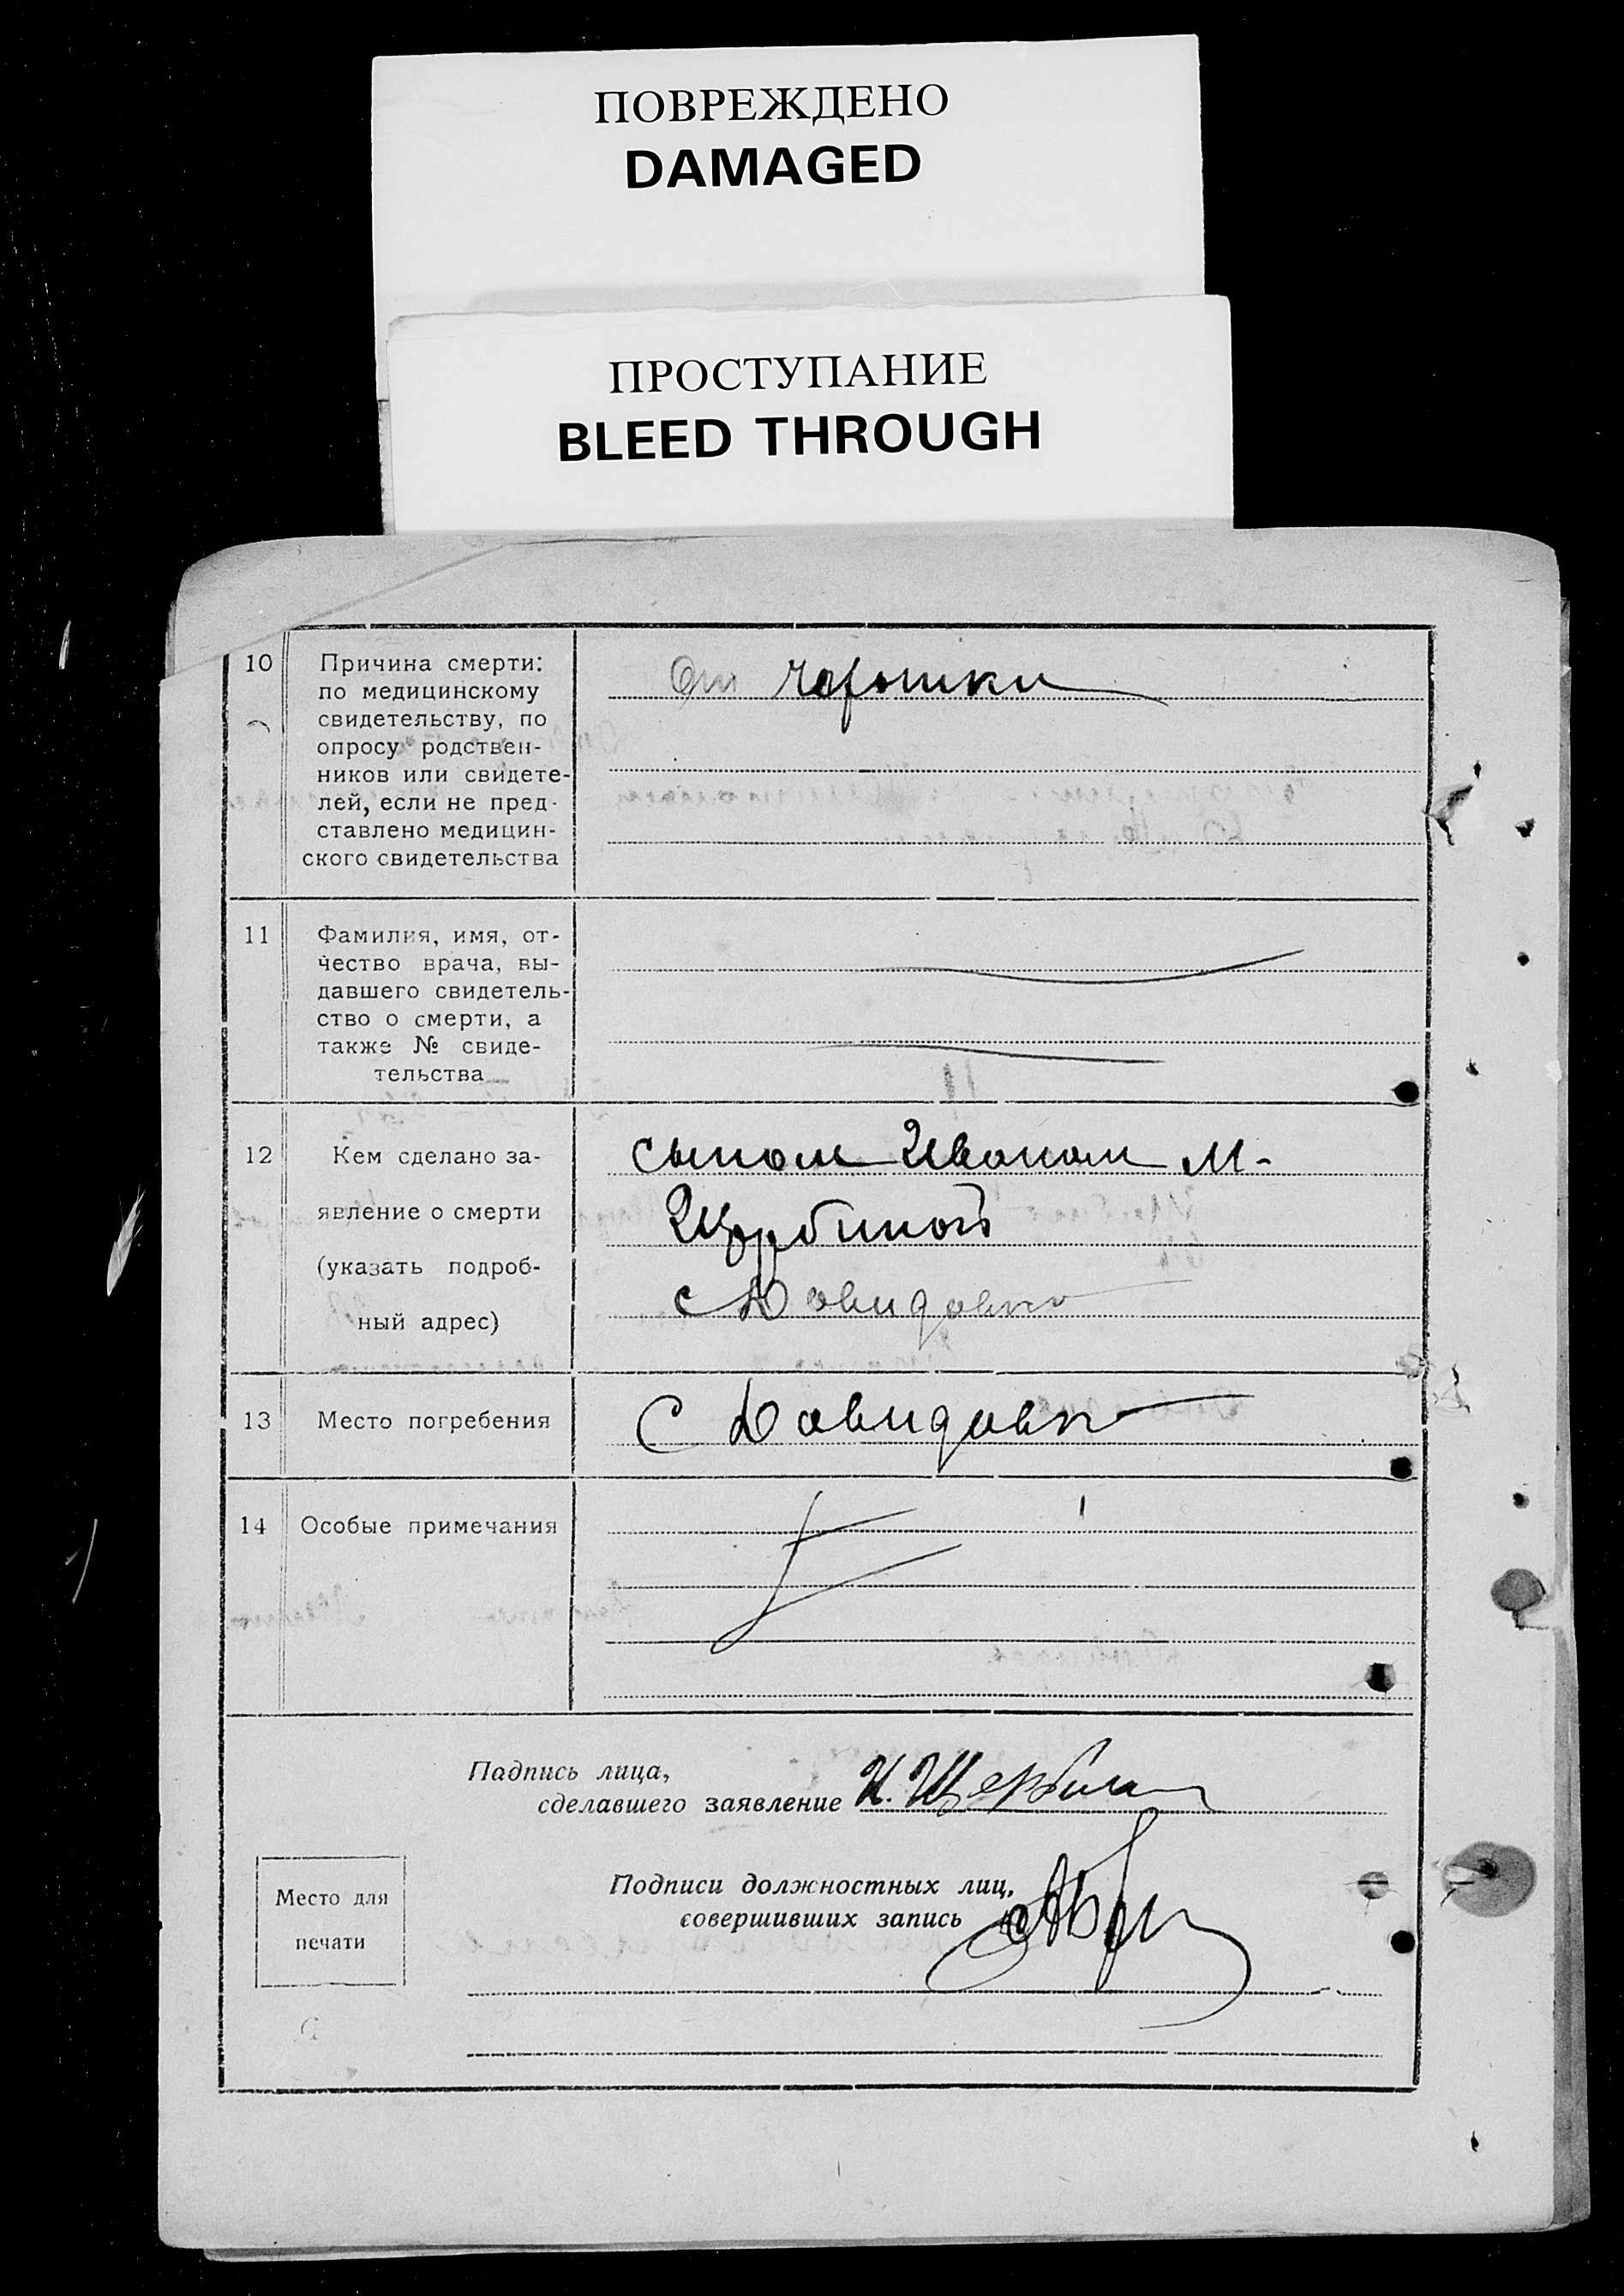 ПОВРЕЖДЕНО
DAMAGED
ПРОСТУПАНИЕ
BLEED THROUGH
10
Причина смерти:
по медицинскому
свидетельству, по
опросу родствен-
ников или свидете-
лей, если не пред-
ставлено медицин-
ского свидетельства
От
11
Фамилия, имя, от-
чество врача, вы-
давшего свидетель-
ство о смерти, а
также № свиде-
тельства
12
Кем сделано за-
явление о смерти
(указать подроб-
ный адрес)
сыном Иваном М-
Щербиной
с Давидовка
13
Место погребения
С Давидовка
14
Особые примечания
Падпись лица,
сделавшего заявление И. Щербина
Место для
печати
Подписи должностных лиц,
совершивших запись